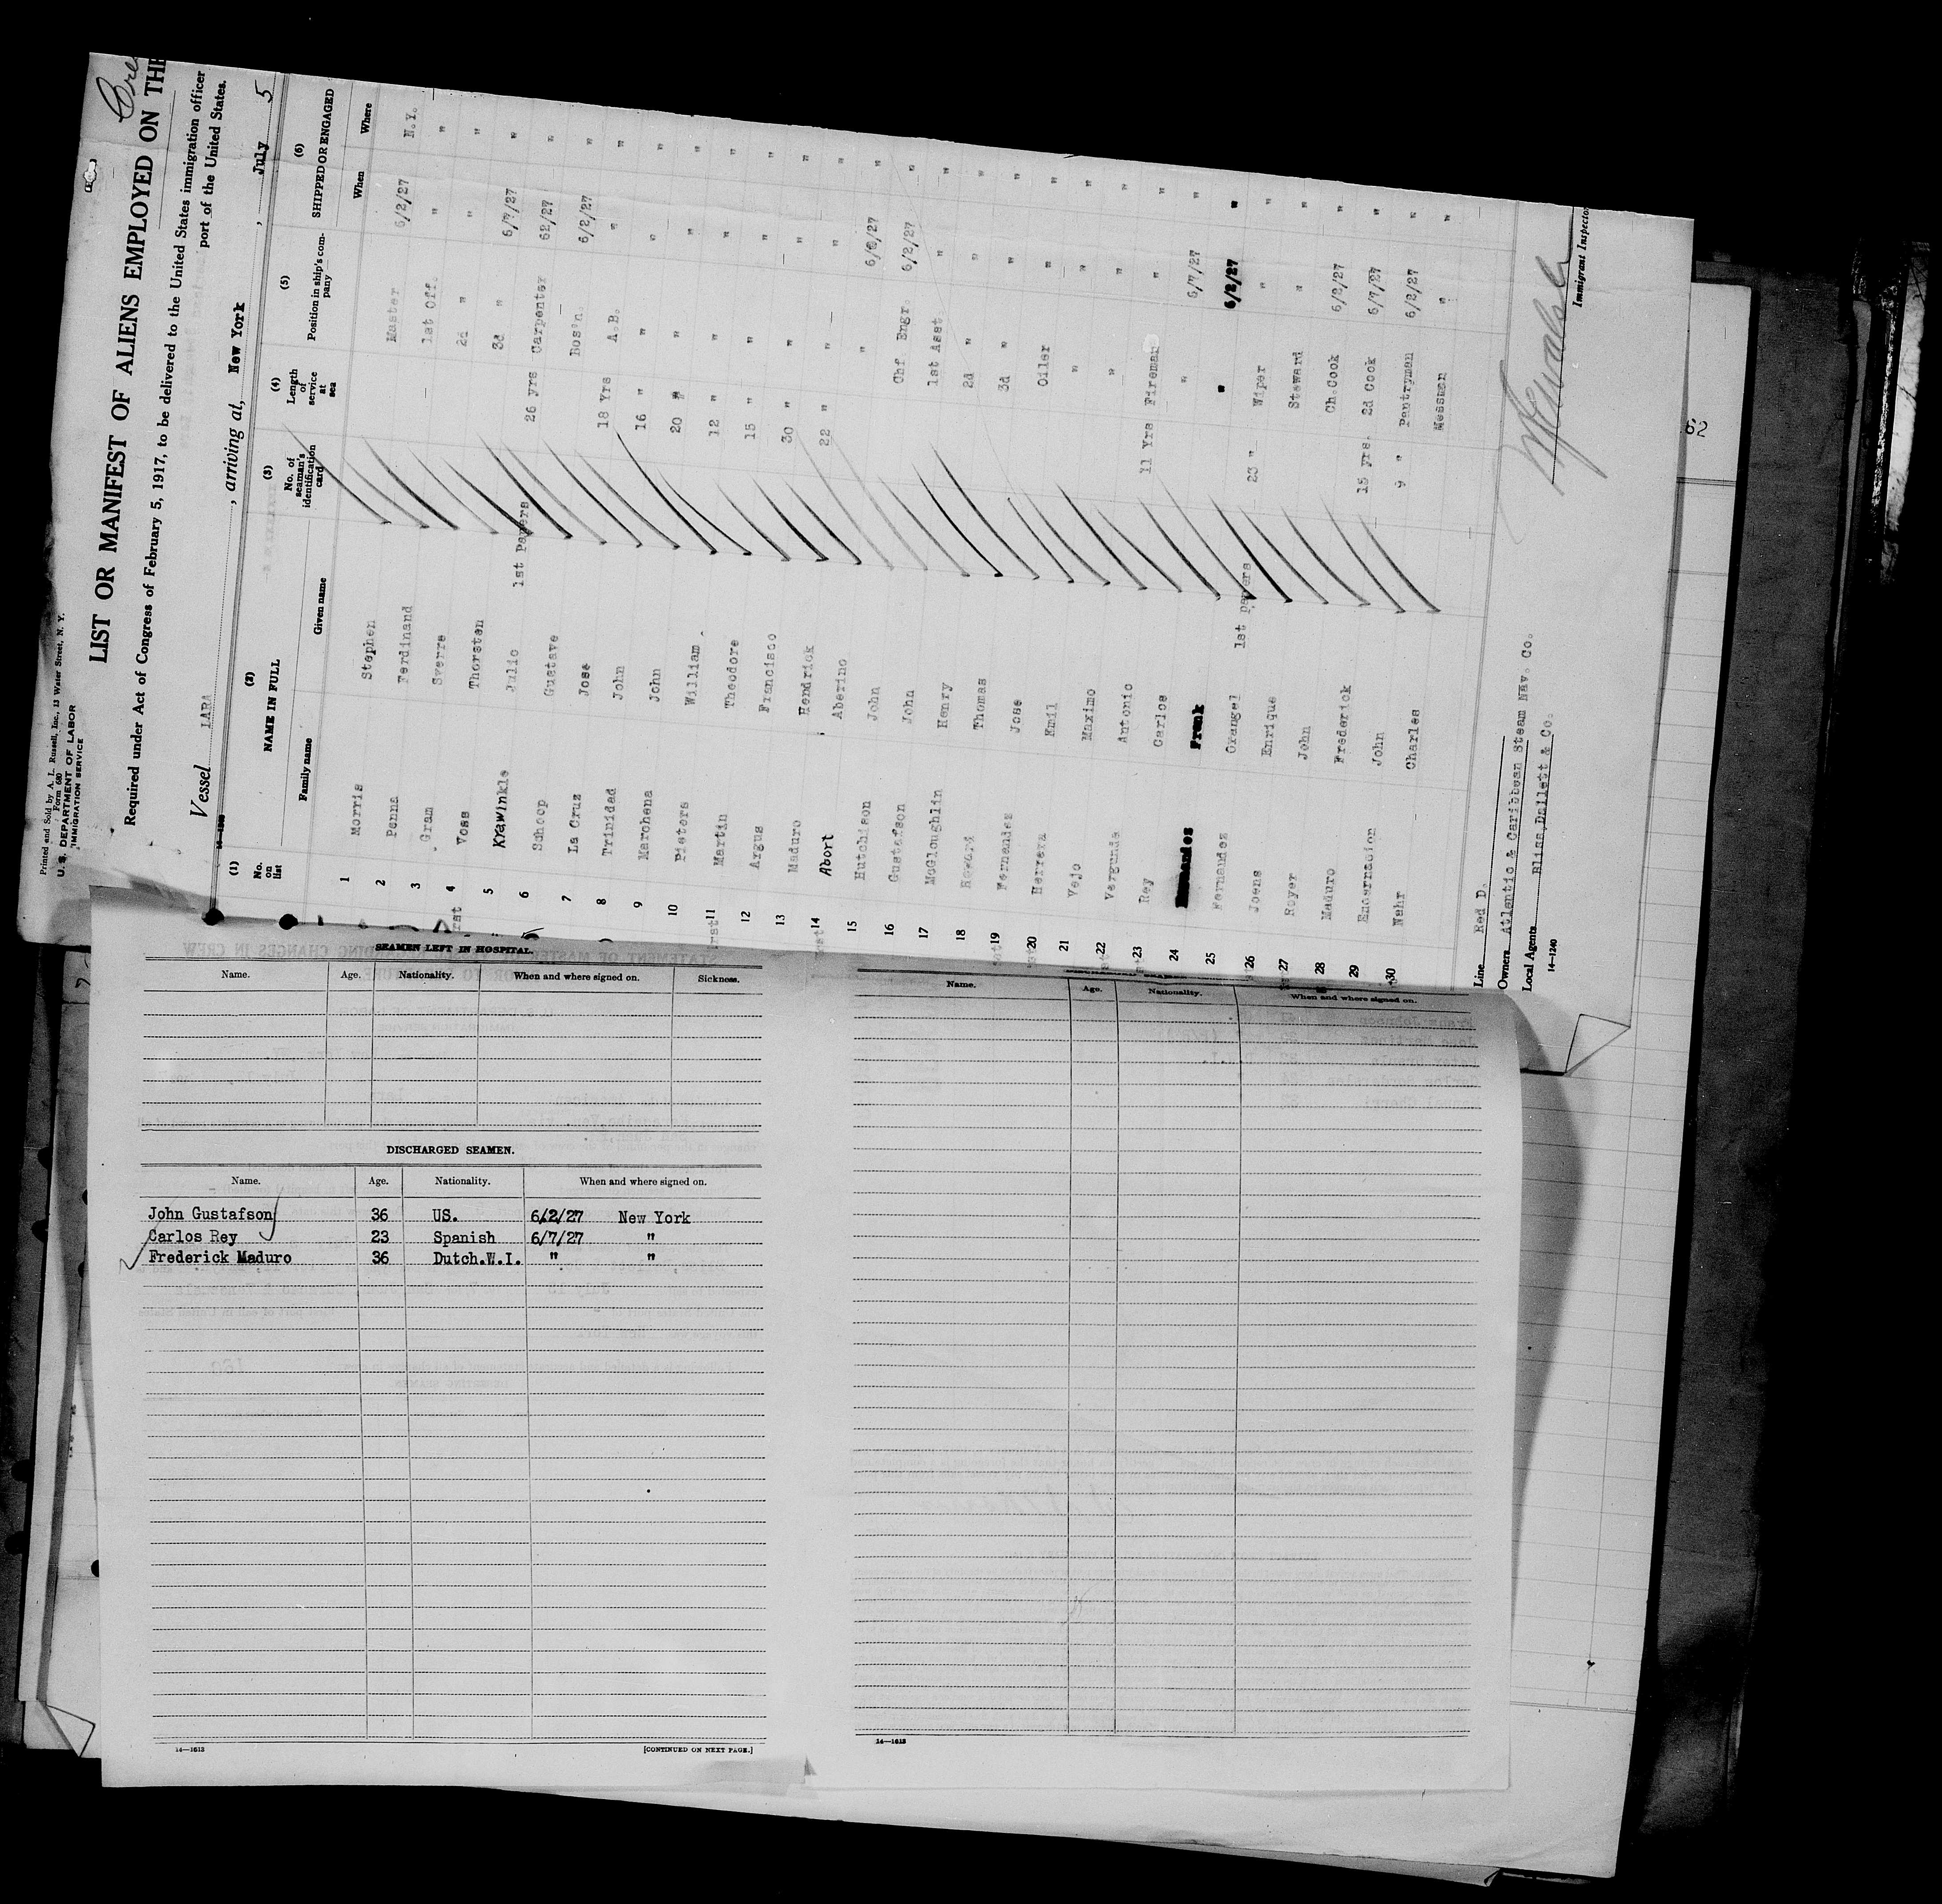 Printed and Sold by A. L. Russell, Inc., 13 Water Street, N. Y.
Form 680
U. S. DEPARTMENT OF LABOR
IMMIGRATION SERVICE
LIST OR MANIFEST OF ALIENS EMPLOYED ON THE
Required under Act of Congress of February 5, 1917, to be delivered to the United States immigration officer
port of the United States.
Vessel LARA , arriving at, New York , July 5
(1) (2) (3) (4) (5) (6)
No. on list NAME IN FULL No. of seaman's identification card Length of service at sea Position in ship's company SHIPPED OR ENGAGED
Family name Given name When Where
1 Morris Stephen Master 6/2/27 N.Y.
2 Penna Ferdinand — 1st Off. " "
3 Gram Sverre 2d " " "
4 Voss Thorsten 3d " 6/7/27 "
5 Krawinkle Julio 1st Papers 26 yrs Carpenter 62/27 "
6 Schoop Gustave — Bos'n. 6/2/27 "
7 La Cruz Jose 18 Yrs A.B. " "
8 Trinidad John 16 " " " "
9 Marchena John 20 " " " "
10 Pieters William 12 " " " "
11 Martin Theodore 15 " " " "
12 Argus Francisco 30 " " " "
13 Maduro Hendrick 22 " " " "
14 Abort Aberino " "
15 Hutchison John Chf Engr. 6/2/27 "
16 Gustafson John 1st Asst " "
17 McGloughlin Henry 2d " " "
18 Howard Thomas 3d " " "
19 Fernandez Jose Oiler " "
20 Herrera Emil " " "
21 Yejo Maximo " " "
22 Vergunde Antonio 11 Yrs Fireman " "
23 Rey Carlos " 6/7/27 "
24 Frank " 6/2/27 "
25 Fernandez Orangel 1st papers 23 " Wiper " "
26 Joens Enrique Steward " "
27 Royer John Ch.Cook 6/2/27 "
28 Maduro Frederick 15 yrs. 2d Cook 6/7/27 "
29 Encarnacion John 9 " Pantryman 6/2/27 "
30 Nahr Charles Messman " "
Line Red D.
Owners Atlantic & Caribbean Steam Nav. Co.
Local Agents Bliss, Dallett & Co.
14-1240
Immigrant Inspector
62
SEAMEN LEFT IN HOSPITAL.
Name. Age. Nationality. When and where signed on. Sickness.
DISCHARGED SEAMEN.
Name. Age. Nationality. When and where signed on.
John Gustafson 36 US. 6/2/27 New York
Carlos Rey 23 Spanish 6/7/27 "
Frederick Maduro 36 Dutch.W.I. " "
14—1613 [CONTINUED ON NEXT PAGE.]
Name. Age. Nationality. When and where signed on.
14—1613